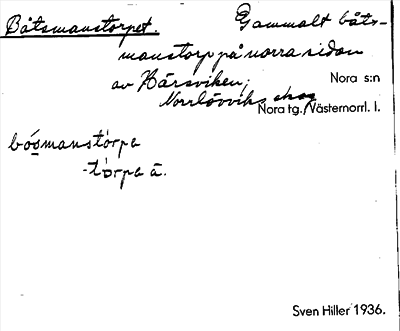 Båtsmanstorpet. Gammalt båts-
manstorp på norra sidan
av Hårsviken;
Nora s:n
Norrlövviks skog
Nora tg., Västernorrl. l.
bósmanstòrpa
-tòrpa ā.
Sven Hiller 1936.